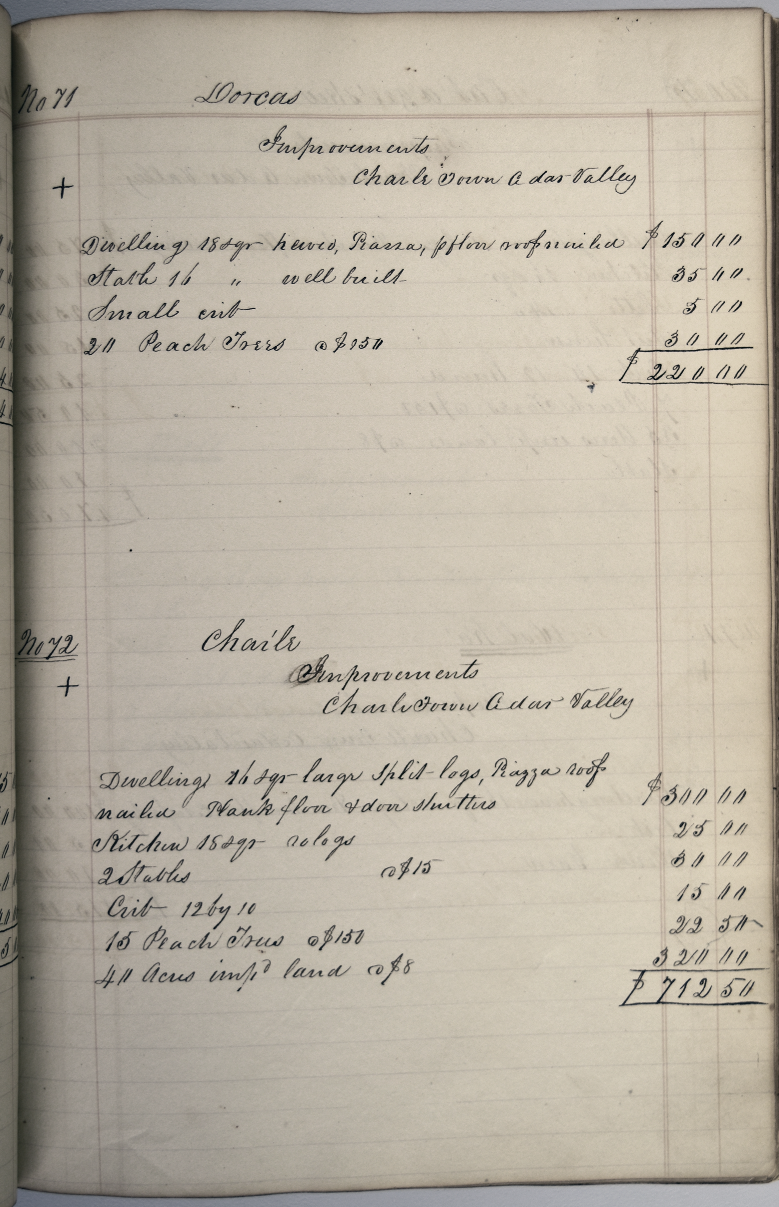 No 71 Dorcas
Improvements
+ Charle Town Cedar Valley
Dwelling 18 sqr hewed, Piazza, p floor roof nailed $150 00
Stable 16 " well built 35 00
Small crib 5 00
20 Peach Trees @ $1 50 30 00
$ 220 00
No 72 Charle
Improvements
+ Charle Town Cedar Valley
Dwelling 16 sqr large split logs, Piazza roof
nailed Plank floor & door shutters $300 00
Kitchen 18 sqr ro logs 25 00
2 Stables @ $15 30 00
Crib 12 by 10 15 00
15 Peach Trees @ $1 50 22 50
40 Acres imp'd land @ $8 320 00
$ 712 50